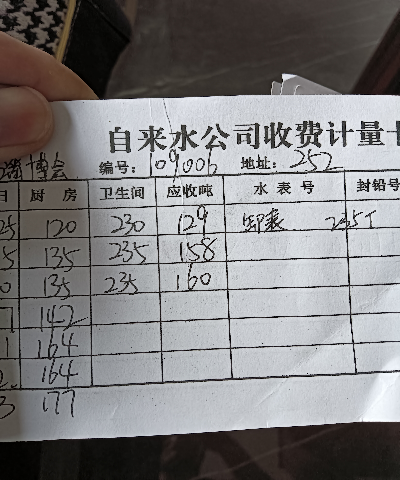 自来水公司收费计量卡
博会 编号: 109006 地址: 252
日 厨房 卫生间 应收吨 水表号 封铅号
25 120 230 129 卸表 235T
5 135 235 158
0 135 235 160
7 142
1 164
2. 164
3 177